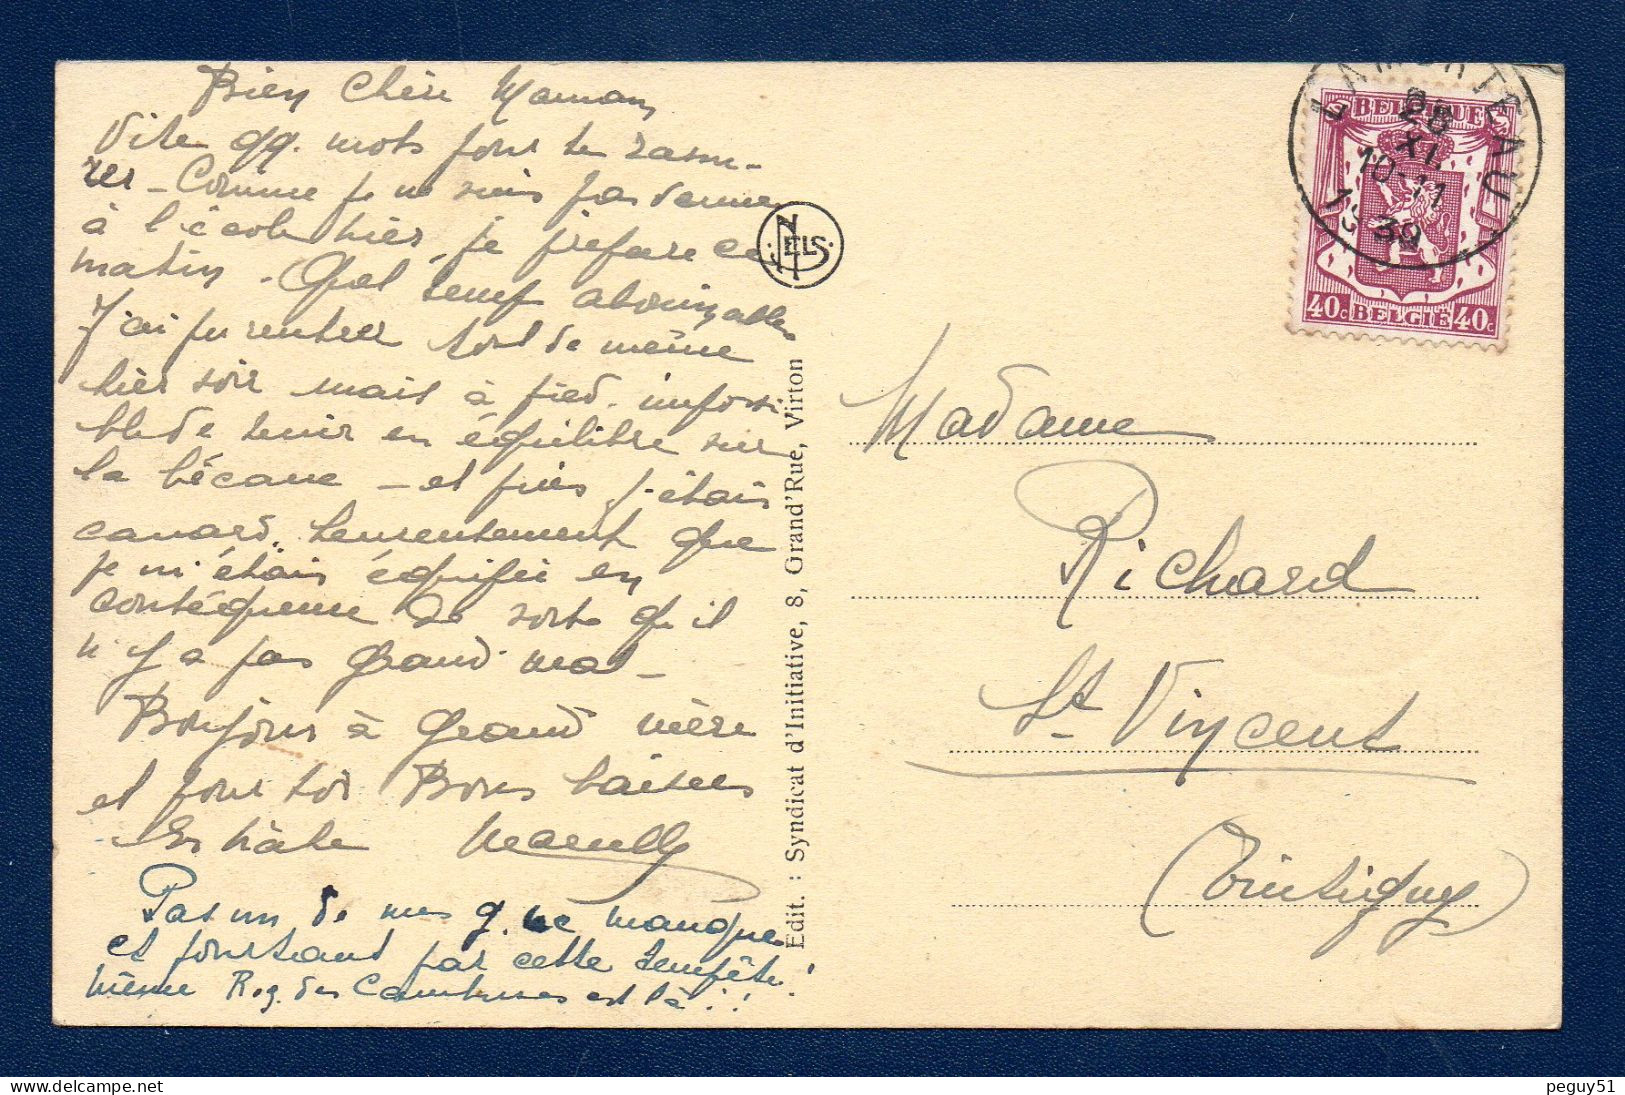 Bien Chère Maman,
Vite qq. mots pour te rassu-
rer - Comme je ne suis pas venue
à l'école hier, je prépare ce
matin. Quel temps abominable
J'ai pu rentrer tout de même
hier soir mais à pied. impossi-
ble de tenir en équilibre sur
la bécane - et puis j'étais
canard. Heureusement que
je m'étais équipée en
conséquence de sorte qu'il
n'y a pas grand mal -
Bonjour à Grand'mère
et pour toi Bons baisers
En hâte
Pas un de mes g. ne manque
et pourtant par cette tempête!
même R. g. des est là!!
NELS
Edit. : Syndicat d'Initiative, 8, Grand'Rue, Virton
LAMORTEAU
28
XI
10-11
1939
BELGIQUE
40c BELGIE 40c
Madame
Richard
St Vincent
(Tintigny)
delcampe.net
peguy51